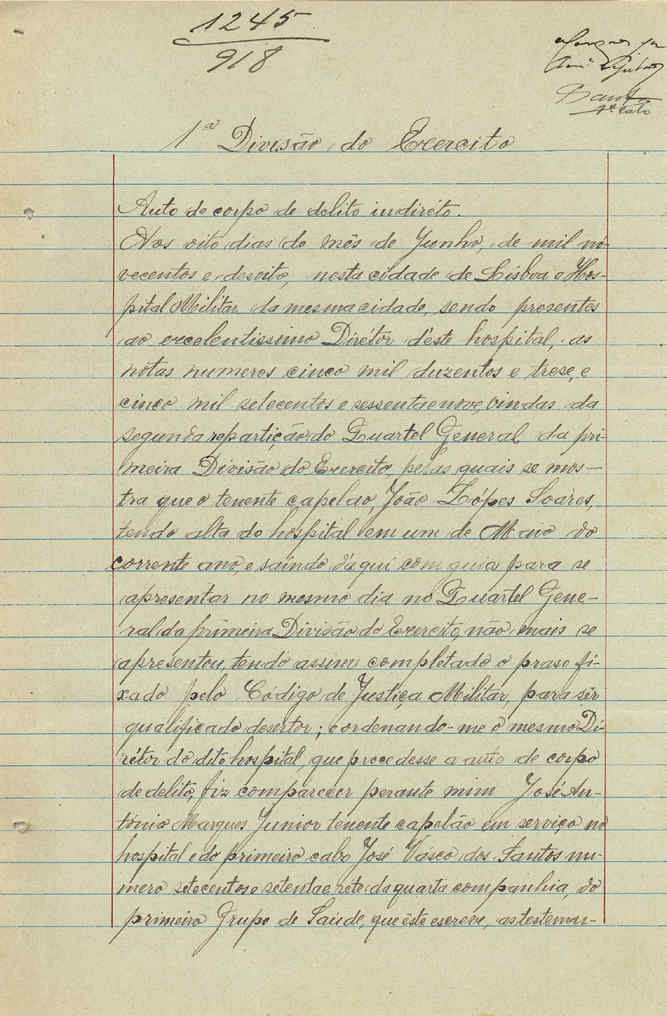 1245
918
1ª Divisão do Exercito
Auto de corpo de delito indiréto.
Aos oito dias do mês de Junho, de mil no-
vecentos e desoito, nesta cidade de Lisboa e Hos-
pital Militar da mesma cidade, sendo presentes
ao excelentissimo Dirétor d'este hospital, as
notas numeros cinco mil duzentos e trese, e
cinco mil setecentos e sessenta e nove, vindas da
segunda repartição do Quartel General da pri-
meira Divisão do Exercito, pelas quais se mos-
tra que o tenente capelão, João Lópes Soares,
tendo alta do hospital em um de Maio do
corrente ano, e saindo d'aqui com guia para se
apresentar no mesmo dia no Quartel Gene-
ral da primeira Divisão do Exercito, não mais se
apresentou, tendo assim completado o praso fi-
xado pelo Código de Justiça Militar, para ser
qualificado desertor; e ordenando-me o mesmo Di-
rétor do dito hospital, que procedesse a auto de corpo
de delito, fiz comparecer perante mim José An-
tónio Marques Junior tenente capelão em serviço no
hospital e do primeiro cabo José Vasco dos Santos nu-
mero setecentos e setenta e sete da quarta companhia, do
primeiro Grupo de Saude, que este escreve, as testemu-